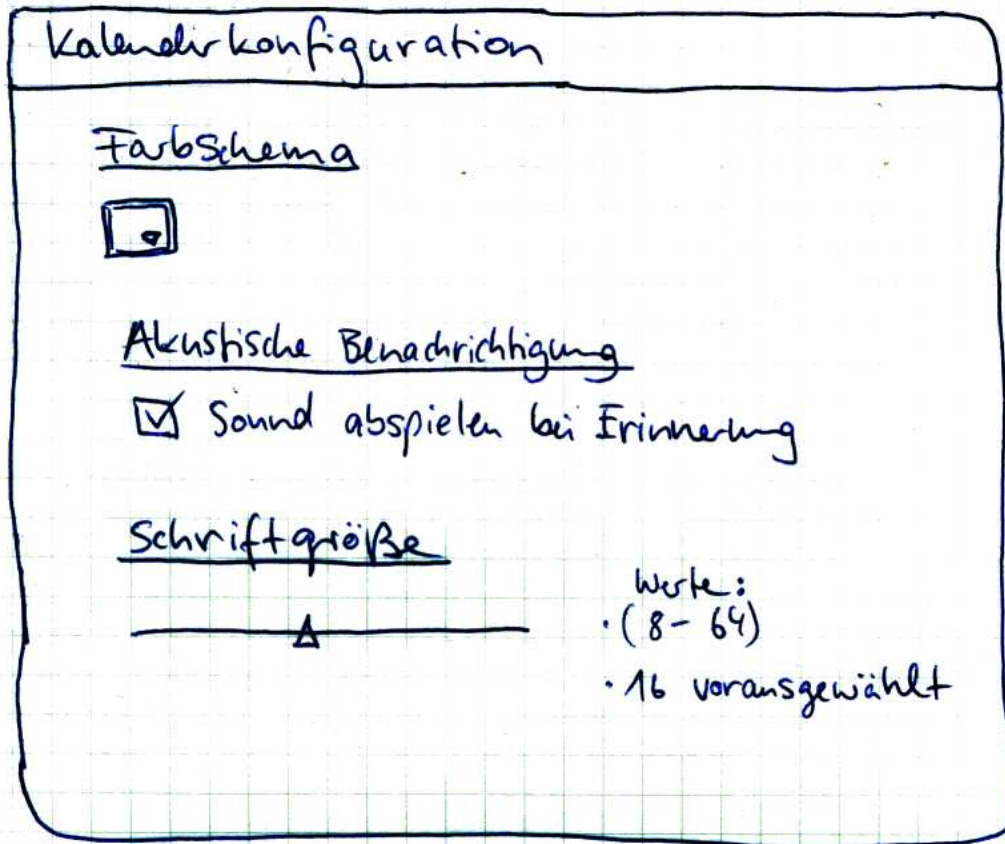 Kalenderkonfiguration
Farbschema
Akustische Benachrichtigung
Sound abspielen bei Erinnerung
Schriftgröße
Werte:
· (8 - 64)
· 16 vorausgewählt